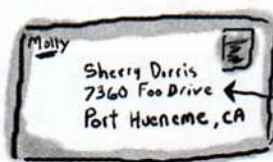 Molly
Sherry Dorris
7360 Foo Drive
Port Hueneme, CA